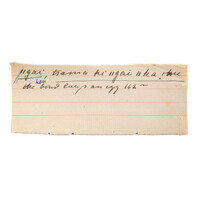 ugai, osama ki ugai uka, the
" the bird lays an egg 162 –